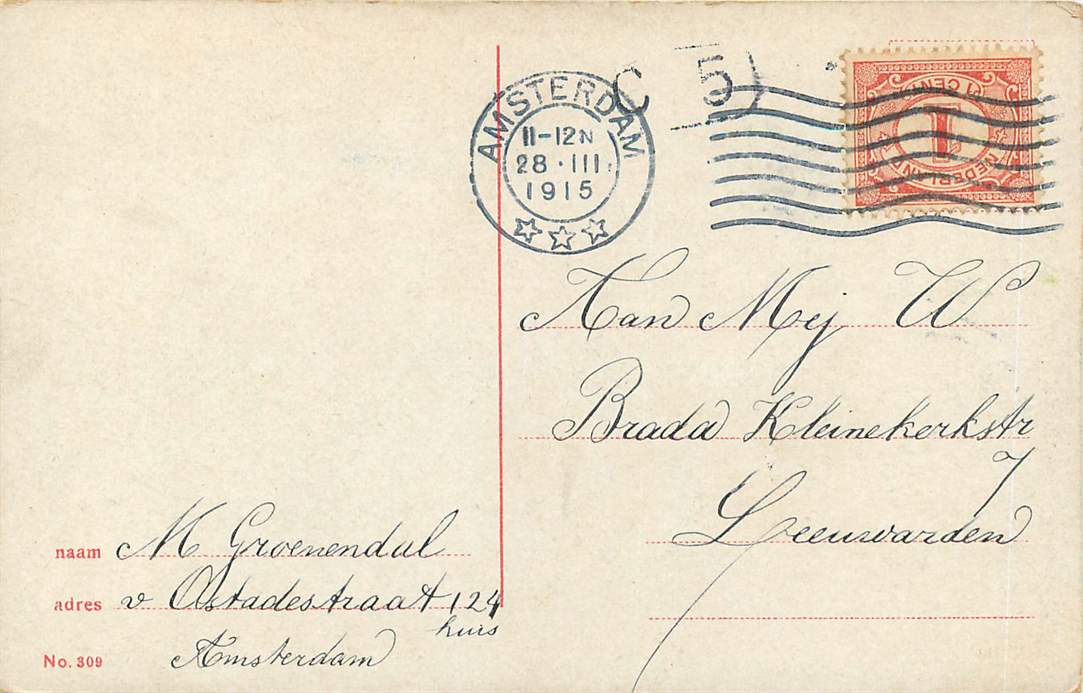 AMSTERDAM
11-12N
28 · III
1915
C 5
1 CENT
1
NEDERLAND
Aan Mej W
Brada Kleinekerkstr
7
Leeuwarden
naam M Groenendal
adres v Ostadestraat 124
huis
Amsterdam
No. 309